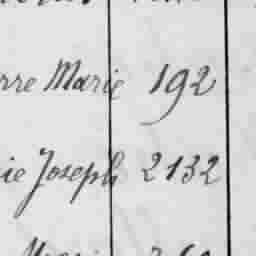 rre Marie 192
ie Joseph 2132